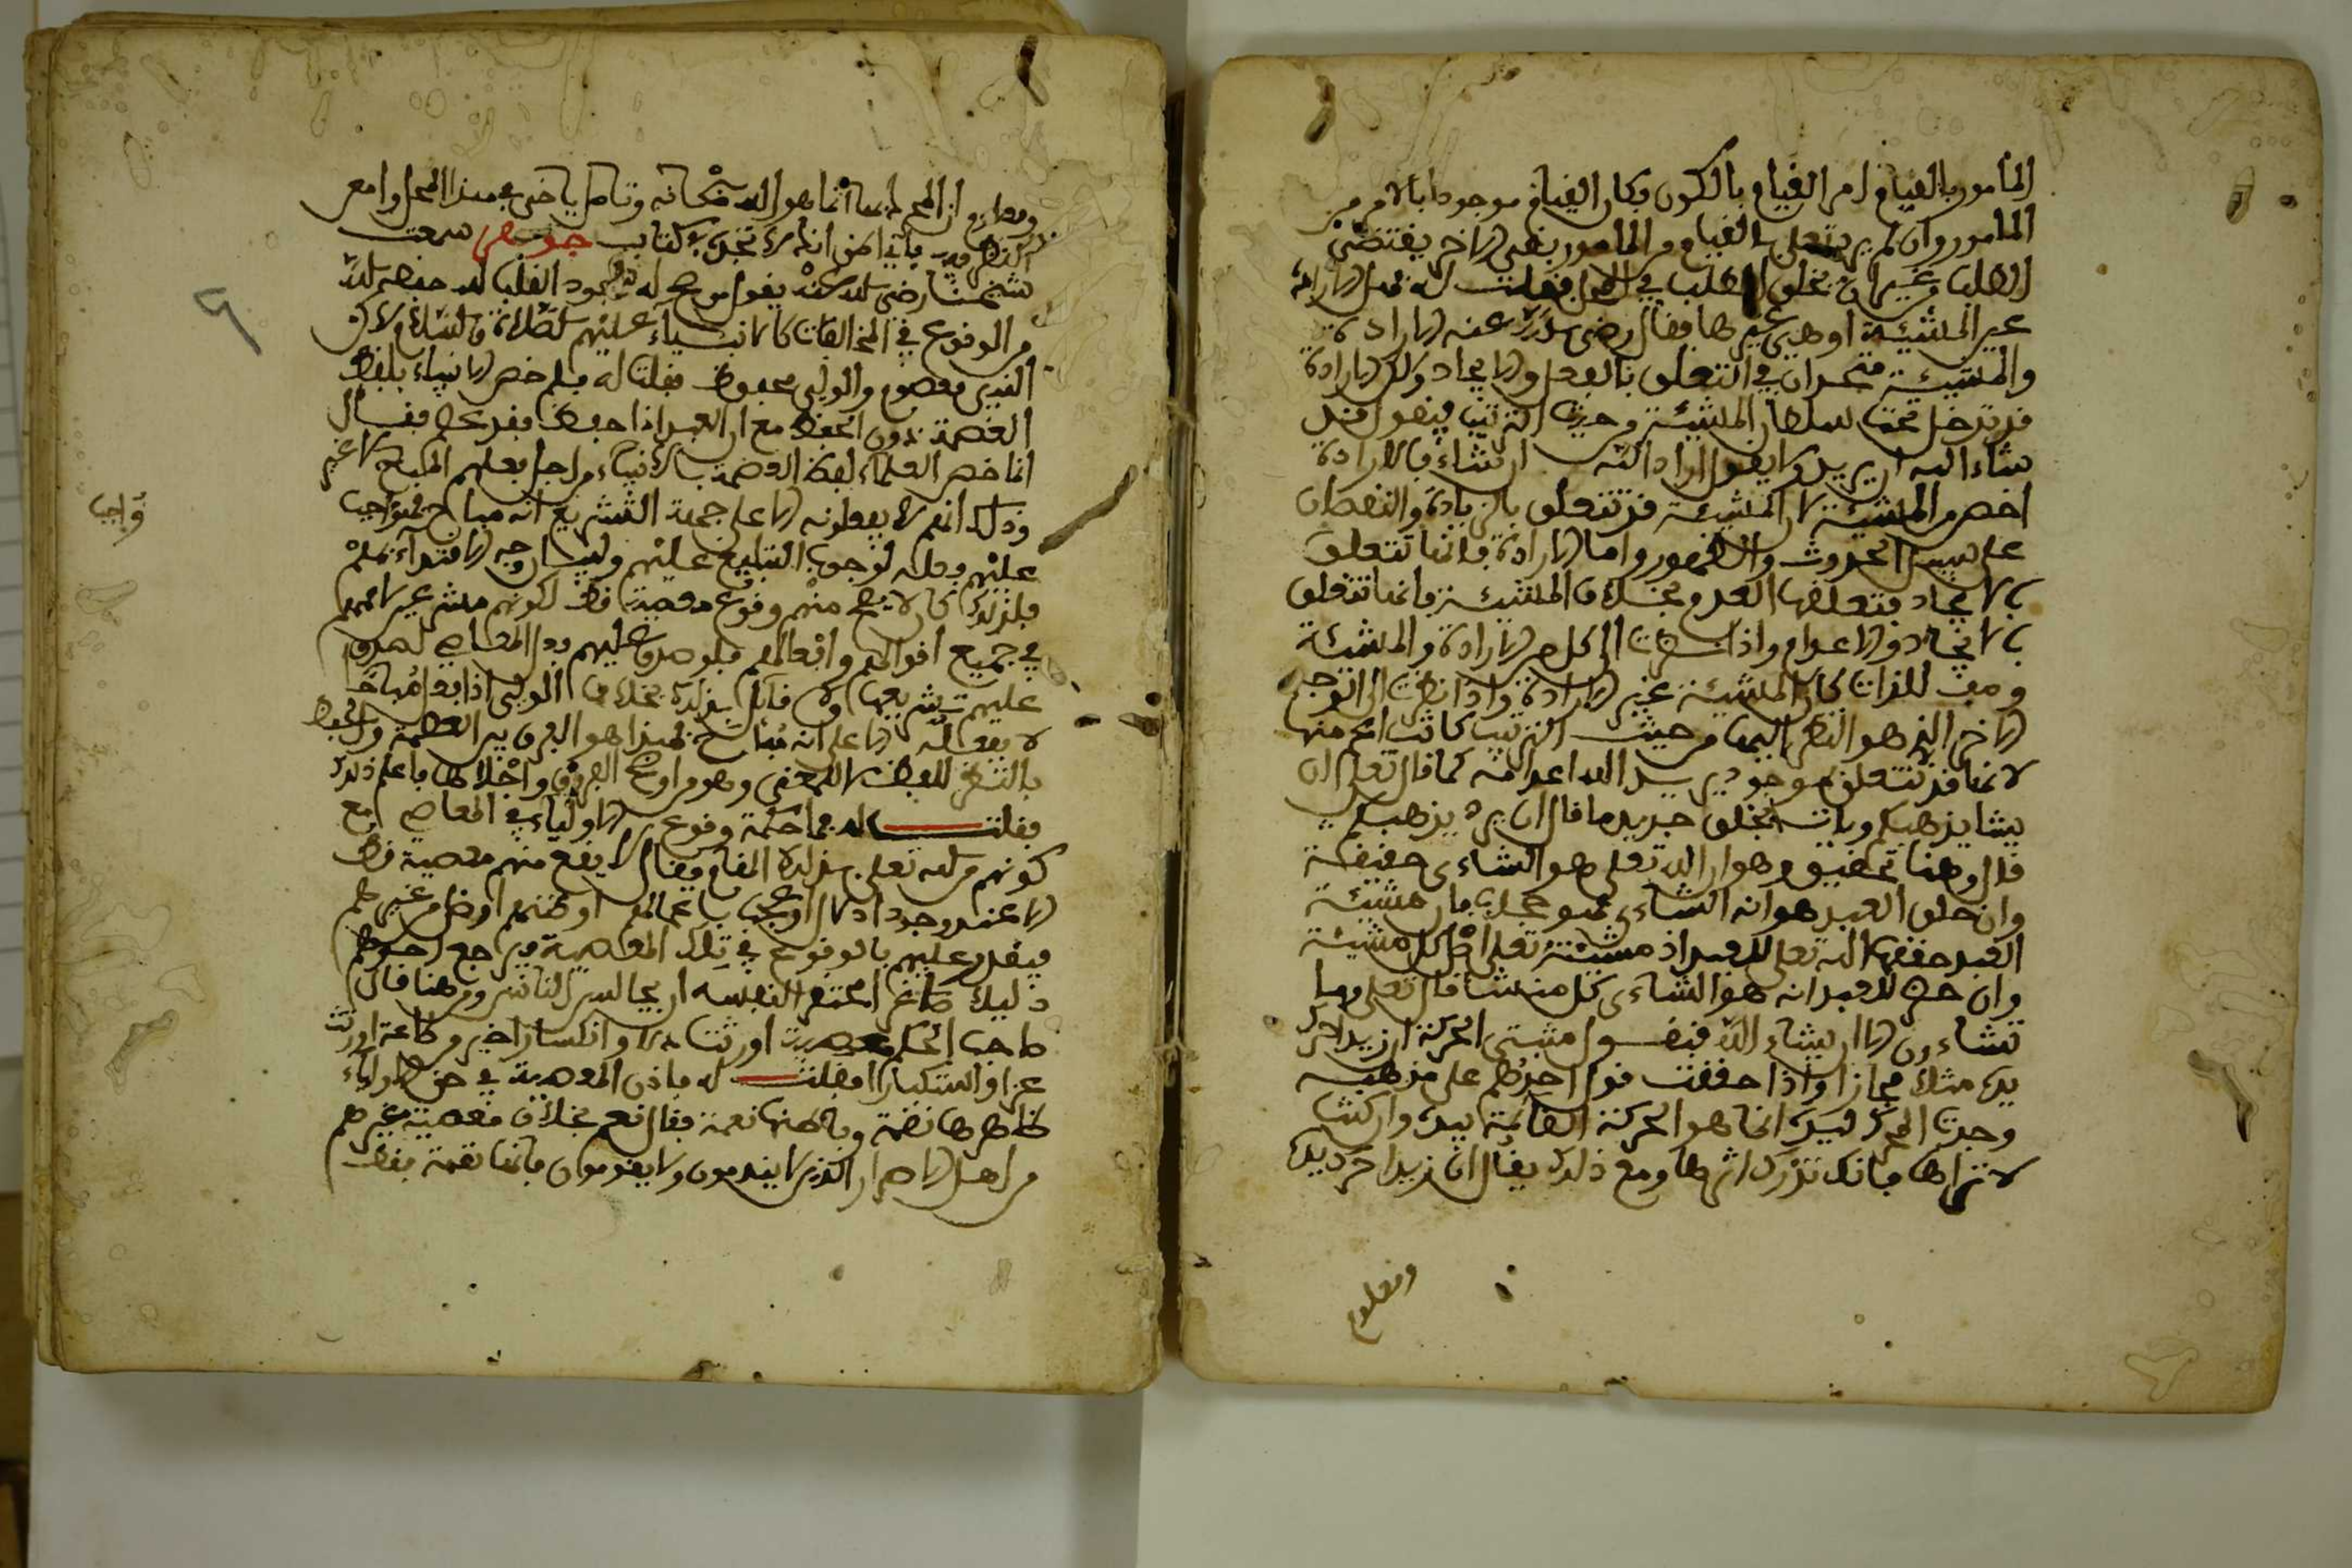 المأمور بالقيام امر القيام بالكون فكان القيام موجودا بالامر من
المأمور وان لم يرد يتعلق بالقيام من المأمور بقي الاخر يقتضي
الطلب من غير ان يتعلق الطلب في المحل فقلت له فهل الارادة
عين المشيئة او هي غيرها فقال رضي الله عنه الارادة
والمشيئة متحدان في التعلق بالفعل والايجاد ولكن الارادة
قد تدخل تحت سلطان المشيئة من حيث الترتيب فيقول قد
شاء الله ان يريد ولا يقول اراد الله ان يشاء فالارادة
اخص من المشيئة لان المشيئة قد تتعلق بالزيادة والنقصان
على سبيل الحدوث والظهور واما الارادة فانما تتعلق
بالايجاد فتعلقها العدم بخلاف المشيئة فانها تتعلق
بالايجاد والاعدام واذا نظرت الى كل من الارادة والمشيئة
وصف للذات كان المشيئة عين الارادة واذا نظرت الى الوجه
الاخر الذي هو النظر اليها من حيث الترتيب كانت اعم منها
لانها قد تتعلق بموجود يريد الله اعدامه كما قال تعلى ان
يشا يذهبكم ويات بخلق جديد ما قال ان يرد يذهبكم
قال وهنا تحقيق وهو ان الله تعلى هو الشاءي حقيقة
وان خلق العبد هو انه الشاءي فهو محل لها لان مشيئة
العبد حققها الله تعلى للعبد اذ مشيئته تعلى اظل كل مشيئة
وان حق للعبد انه هو الشاءي كل من شا قال تعلى وما
تشاءون الا ان يشاء الله فنقول مثبتي الحركة ان زيدا حرك
يده مثلا مجازا واذا حققت قول احدهم على مذهبه
وجدت المحرك ليده انما هو الحركة القائمة بيده وان كنت
لا تراها فانك تدرك اثرها ومع ذلك يقال ان زيدا حرك يده
ومعلوم
ومعلوم ان المحرك لها انما هو الله سبحانه وتامل ياخي في هذا المحل وامعن
النظر فيه ياخي فانك لا تجده في كتاب جوهر سمعت
شيخنا رضي الله عنه يقول من صح له شهود القلب لله حفظه الله
من الوقوع في المخالفات كالانبياء عليهم الصلاة والسلام لاكن
النبي معصوم والولي محفوظ فقلت له فلم خص الانبياء بلفظ
العصمة دون الحفظ مع ان العبد اذا حفظ فقد عصم فقال
انما خص العلماء لفظ العصمة بالانبياء من اجل فعلهم المباح لا غير
وذلك انهم لا يفعلونه الا على جهة التشريع انه مباح فهو واجب
واجب
عليهم فعله لوجوب التبليغ عليهم وليبان وجه الاقتداء بهم
فلذلك كان لا يصح منهم وقوع معصية قط لكونهم مشرعين لاممهم
في جميع اقوالهم وافعالهم فلو صدق عليهم فعل المعاصي لصدق
عليهم تشريعها ولا قائل بذلك بخلاف الولي اذا فعل مباحا
لا يفعله الا على انه مباح فهذا هو الفرق بين العصمة والحفظ
بالنظر للفظ لا للمعنى وهو من اوضح الفروق واجلاها فاعلم ذلك
فقلت له فما حكمة وقوع الاولياء في المعاصي مع
كونهم من الله تعلى بذلك المقام فقال لا يقع منهم معصية قط
الا عند وجود ادلال او عجب باعمالهم او ظنهم افضل من غيرهم
فيقدر عليهم بالوقوع في تلك المعصية فيراجع احدهم
ذليلا صاغرا محتقرا لنفسه ان يجالس الناس ومن هنا قال
صاحب الحكم معصية اورثت ذلا وانكسارا خير من طاعة اورثت
عزا واستكبارا فقلت له فاذن المعصية في حق الاولياء
ظاهرها نقمة وباطنها نعمة فقال نعم بخلاف معصية غيرهم
من اهل الاصرار الذين لا يندمون ولا يقومون فانها نقمة فقط